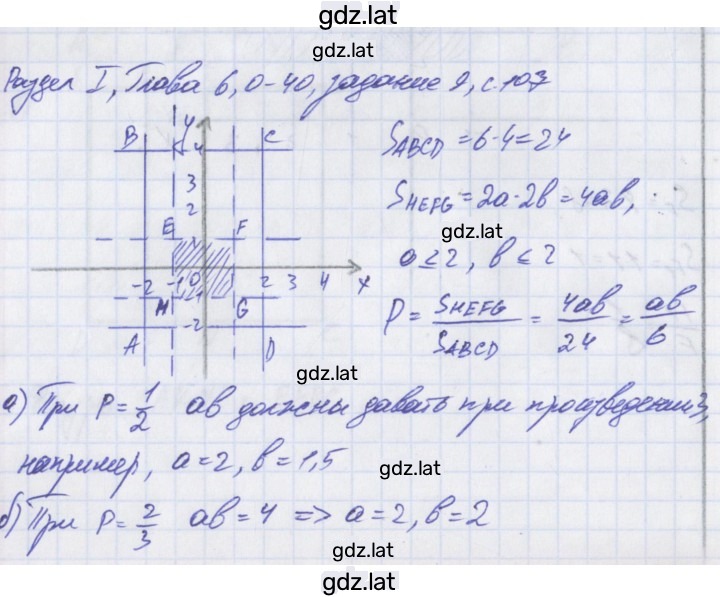 gdz.lat
Раздел I, Глава 6, О-40, задание 9, с.107
gdz.lat
B y C
4
3
2
E F
-2 -1 0 2 3 4 x
H -1 G
-2
A D
S_ABCD = 6·4 = 24
S_HEFG = 2a·2b = 4ab,
gdz.lat
a ≤ 2, b ≤ 2
P = S_HEFG / S_ABCD = 4ab / 24 = ab / 6
gdz.lat
а) При P = 1/2 ab должны давать при произведении 3,
например, a = 2, b = 1,5
gdz.lat
б) При P = 2/3 ab = 4 => a = 2, b = 2
gdz.lat
gdz.lat